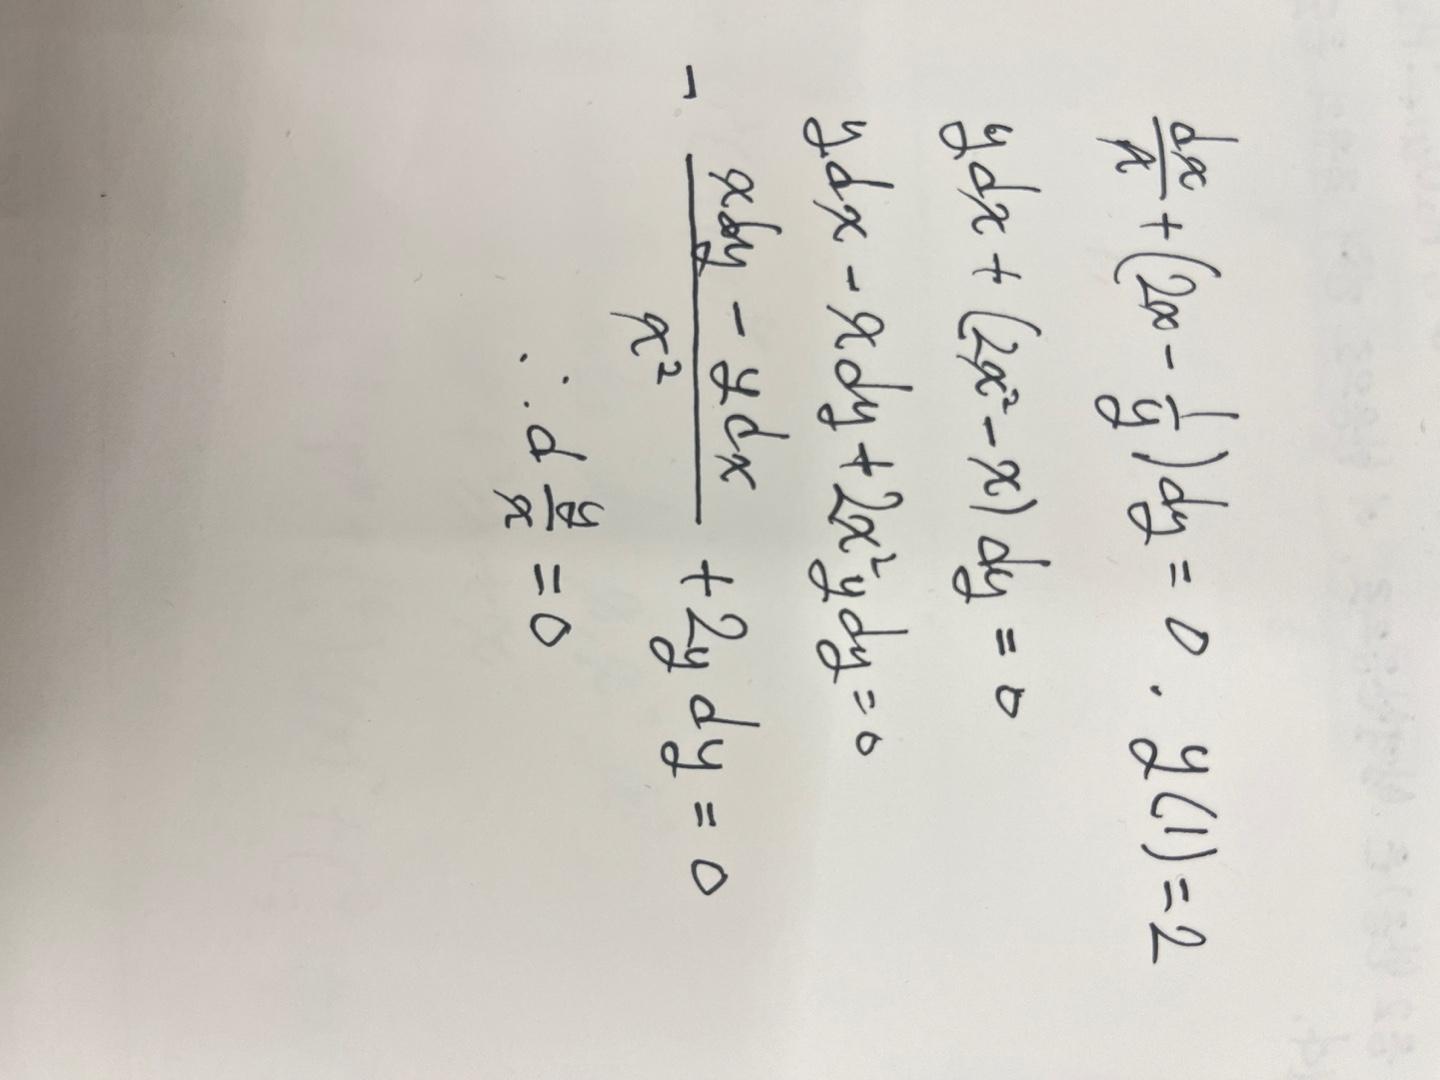 dx/x + (2x - 1/y) dy = 0 . y(1) = 2
ydx + (2x² - x) dy = 0
ydx - xdy + 2x²ydy = 0
- (xdy - ydx)/x² + 2y dy = 0
∴ d y/x = 0